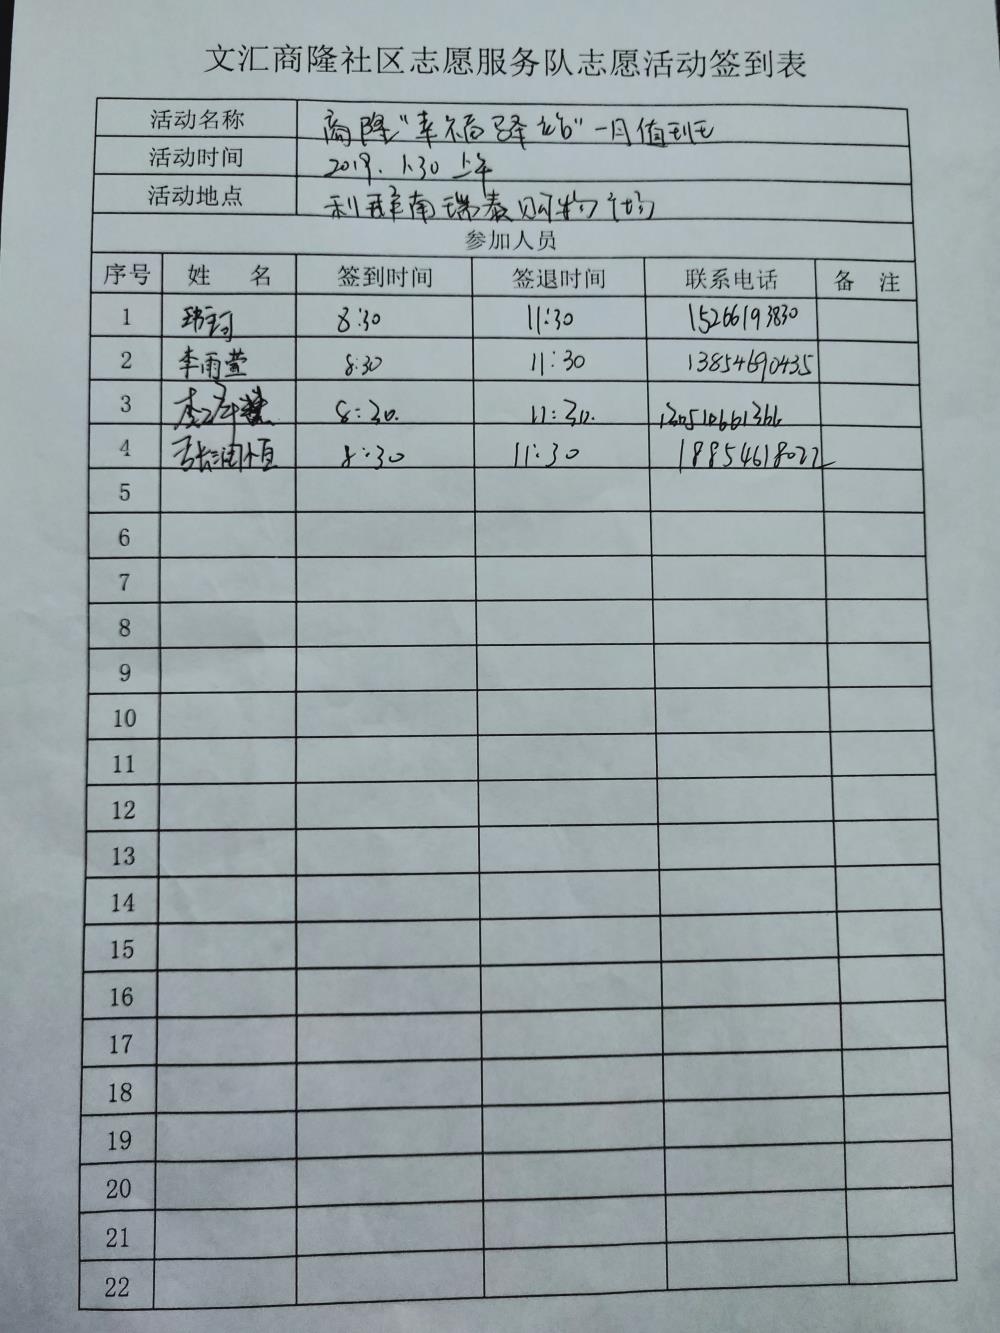 文汇商隆社区志愿服务队志愿活动签到表
活动名称 商隆“幸福驿站”一月值班
活动时间 2019.1.30 上午
活动地点 利群南瑞泰购物广场
参加人员
序号 姓 名 签到时间 签退时间 联系电话 备 注
1 8:30 11:30 15266193830
2 李雨萱 8:30 11:30 13854690435
3 8:30. 11:30. 130510661366
4 张润恒 8:30 11:30 18854618022
5
6
7
8
9
10
11
12
13
14
15
16
17
18
19
20
21
22